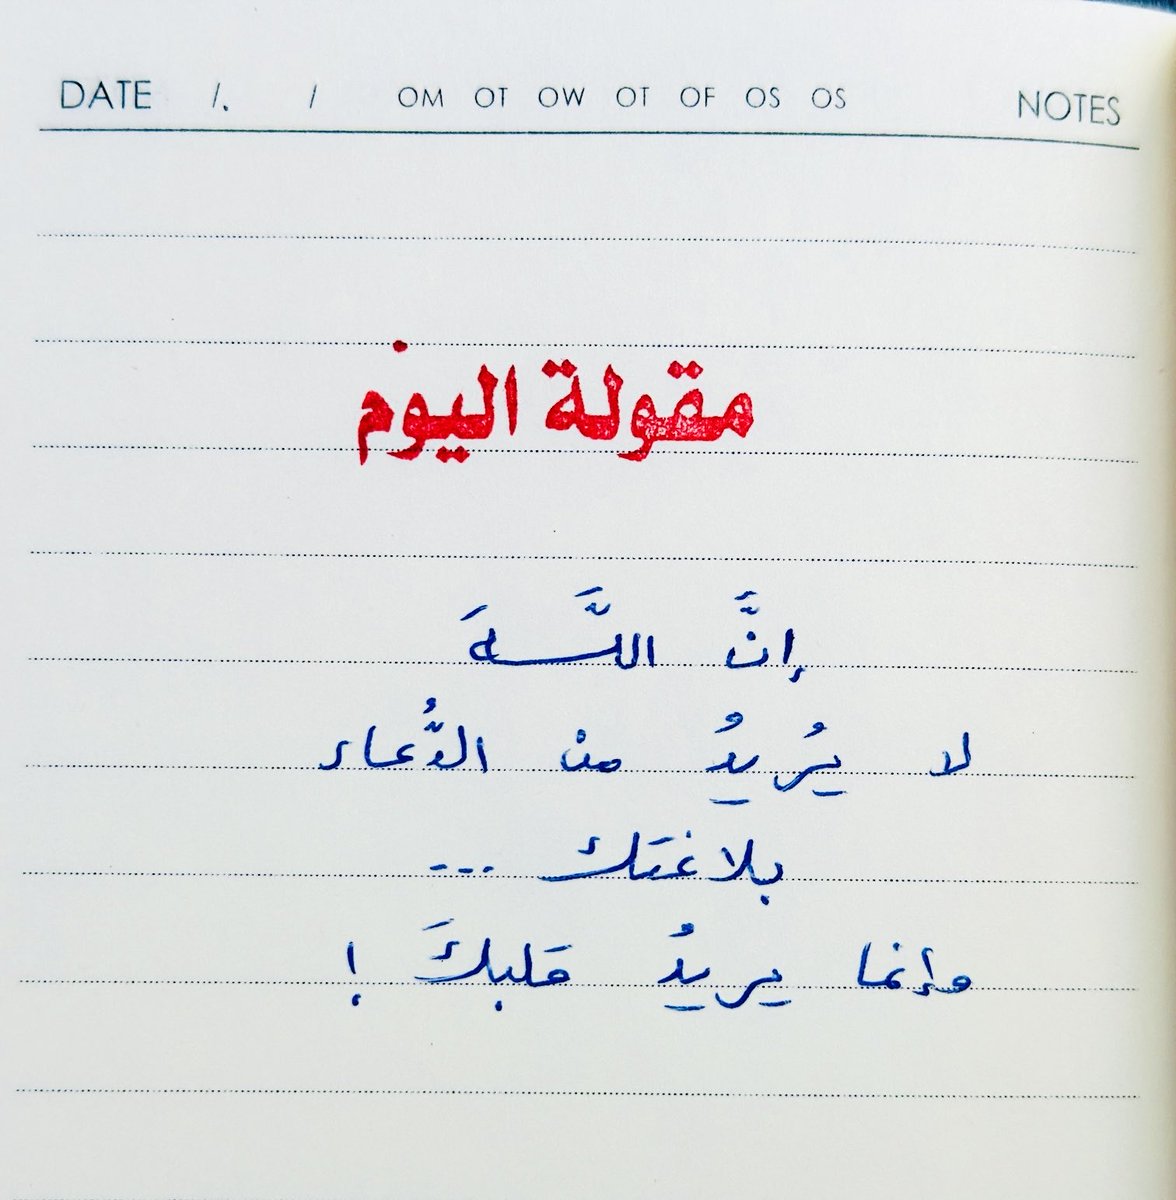 DATE / / OM OT OW OT OF OS OS NOTES
مقولة اليوم
إنَّ اللَّهَ
لا يُريدُ من الدُّعاء
بلاغتَك ...
وإنما يريدُ قلبكَ !